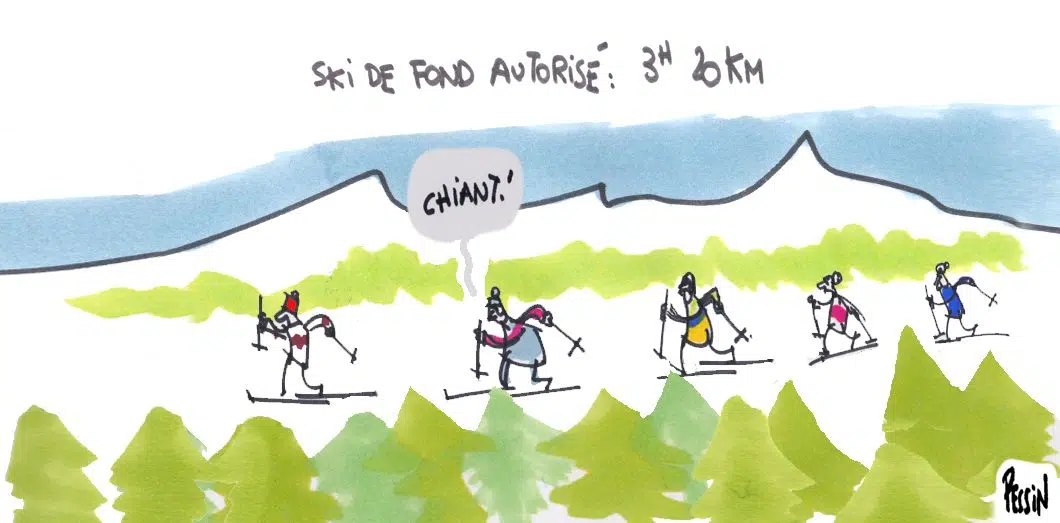 SKI DE FOND AUTORISÉ: 3H 20KM
CHIANT!
PESSIN